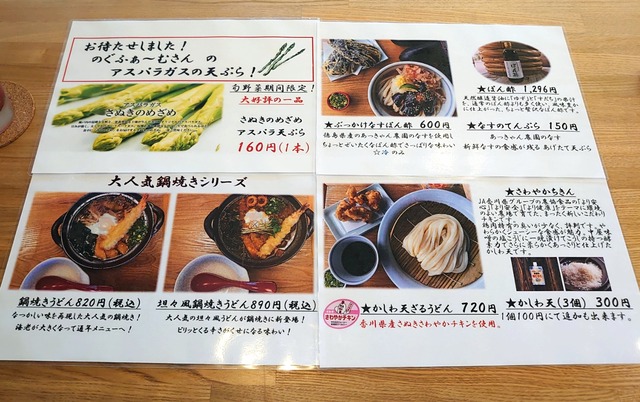 お待たせしました！
のぐふぁ～むさん の
アスパラガスの天ぷら！
旬野菜期間限定！
大好評の一品
アスパラガス
さぬきのめざめ
さぬきのめざめ
アスパラ天ぷら
160円(1本)
★ぶっかけなす 600円
徳島県産のあっきゃん農園のなすを使用し
ちょっとぜいたくなぽん酢でさっぱりな味わい
☆冷のみ
★ぽん酢 1,296円
★なすのてんぷら 150円
あっきゃん農園のなす
新鮮なすの食感が残る あげたて天ぷら
大人気鍋焼きシリーズ
鍋焼きうどん820円(税込)
なつかしい味を再現した大人気の鍋焼き！
海老が大きくなって通年メニューへ！
坦々風鍋焼きうどん890円(税込)
大人気の坦々風うどんが鍋焼きに新登場！
ピリッとくる辛さがくせになる味わい！
さわやかチキン
★かしわ天ざるうどん 720円
香川県産さぬきさわやかチキンを使用。
★さわやかちきん
★かしわ天(3個) 300円
1個100円にて追加も出来ます。